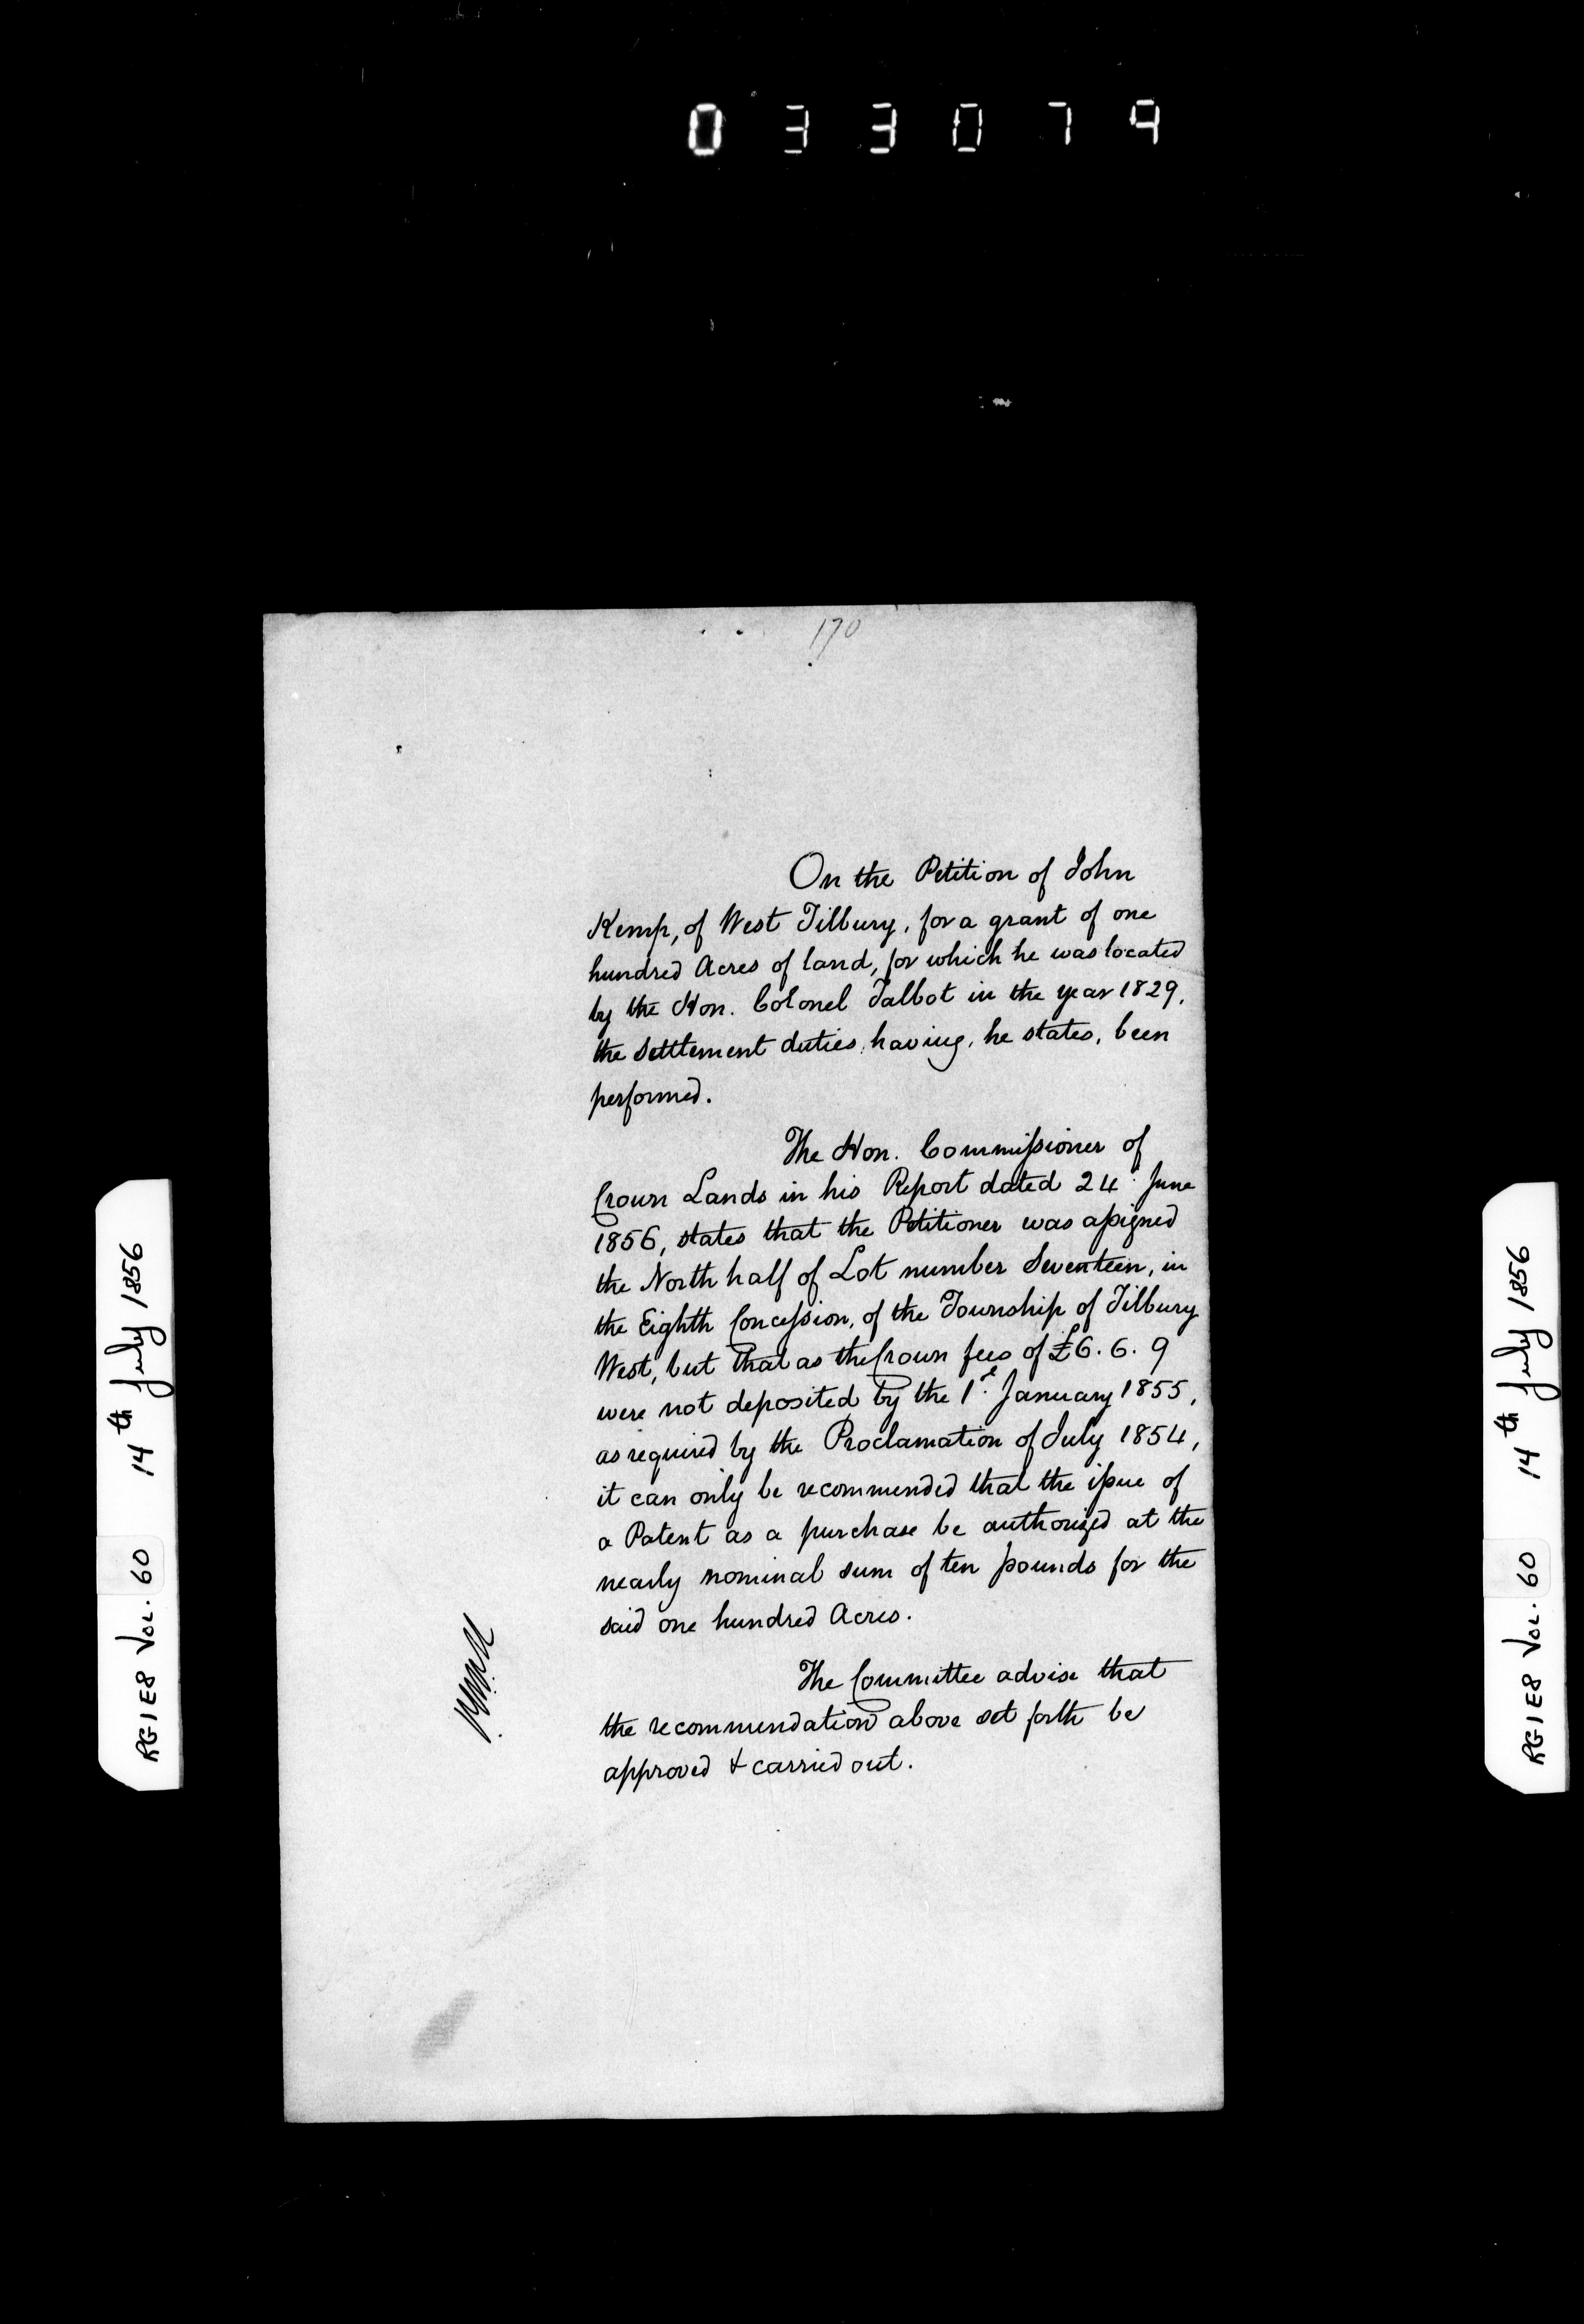 033079
170
On the Petition of John
Kemp, of West Tilbury, for a grant of one
hundred Acres of land, for which he was located
by the Hon. Colonel Talbot in the year 1829,
the settlement duties, having, he states, been
performed.
The Hon. Commissioner of
Crown Lands in his Report dated 24 June
1856, states that the Petitioner was assigned
the North half of Lot number Seventeen, in
the Eighth Concession, of the Township of Tilbury
West, but that as the Crown fees of £6.6.9
were not deposited by the 1st January 1855,
as required by the Proclamation of July 1854,
it can only be recommended that the issue of
a Patent as a purchase be authorized at the
nearly nominal sum of ten pounds for the
said one hundred Acres.
The Committee advise that
the recommendation above set forth be
approved & carried out.
RG1E8 VOL. 60 14th July 1856
RG1E8 VOL. 60 14th July 1856